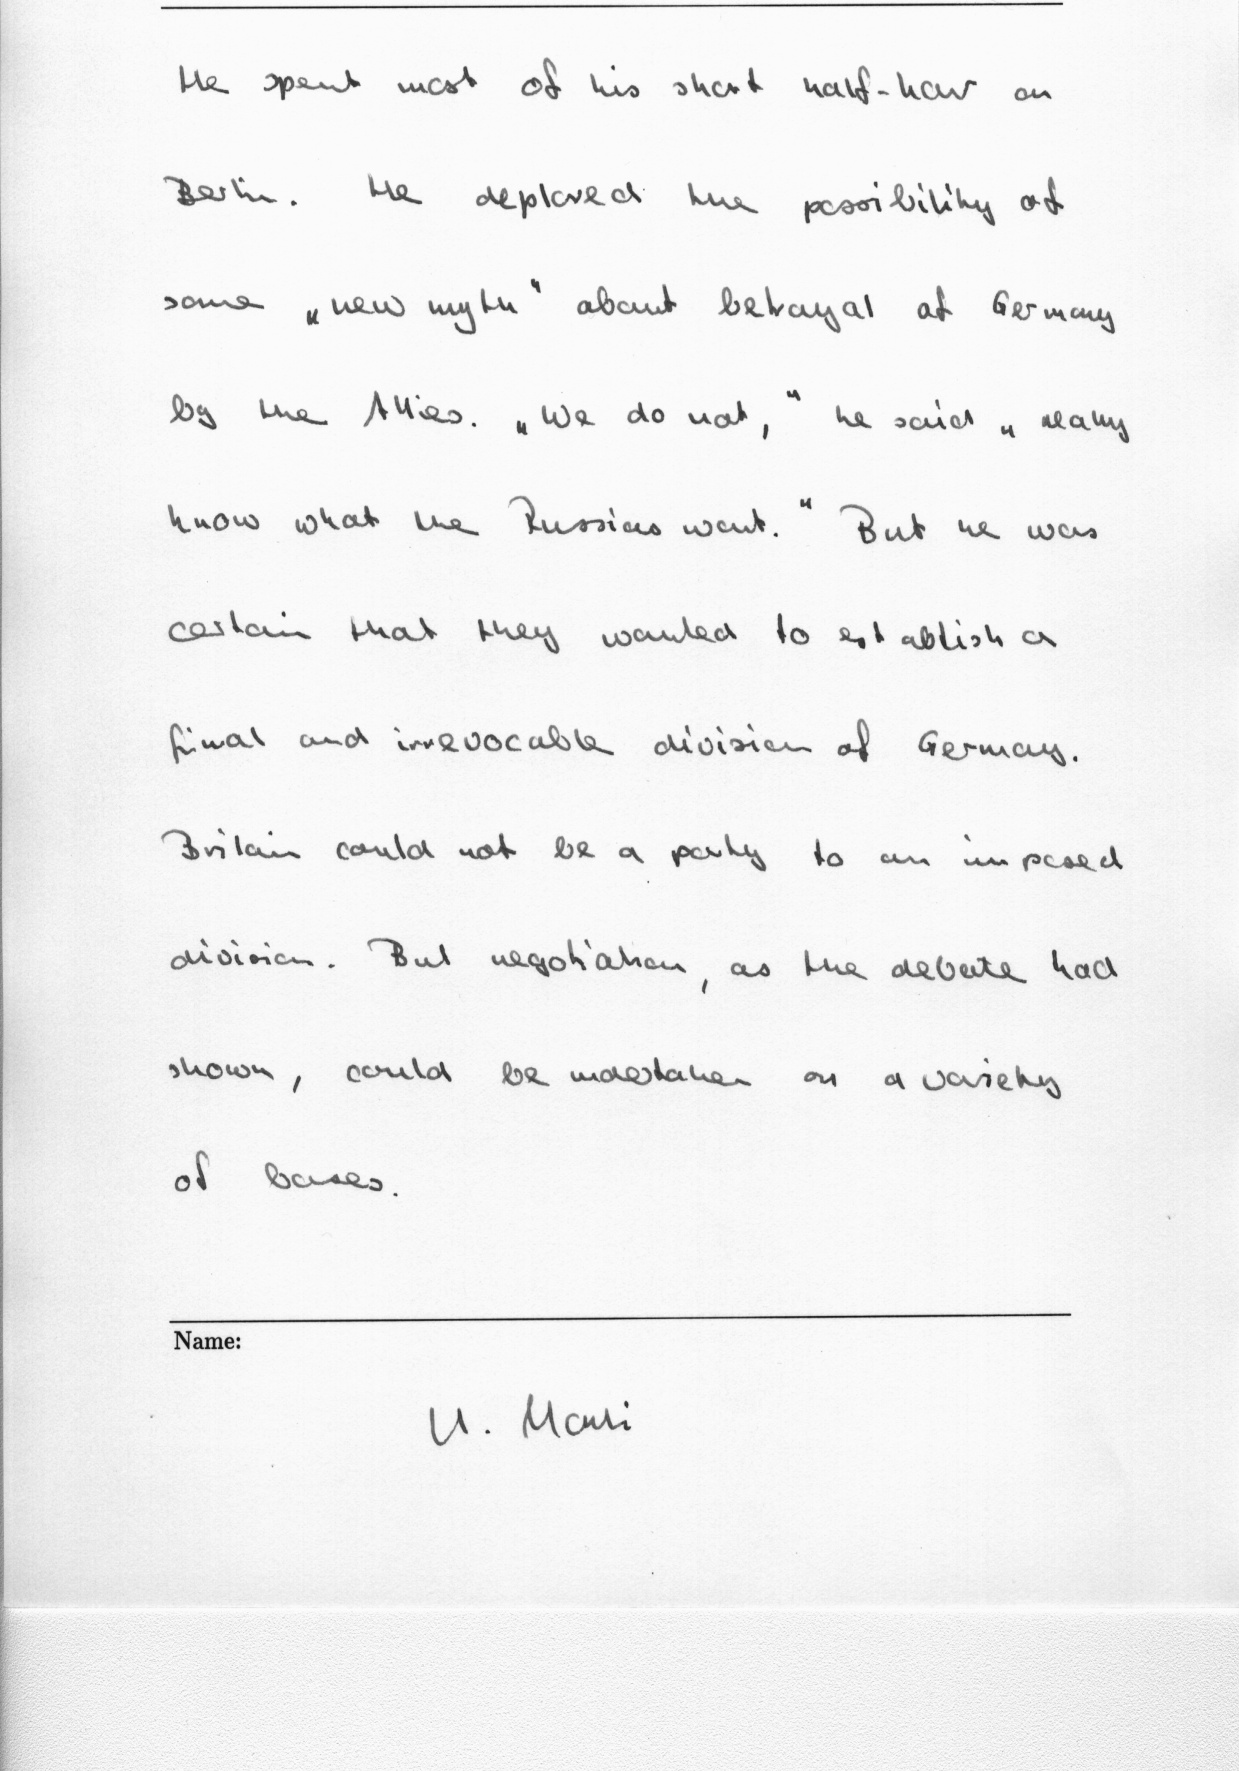 He spent most of his short half-hour on
Berlin. He deplored the possibility of
some „new myth" about betrayal of Germany
by the Allies. „We do not," he said „really
know what the Russians want." But he was
certain that they wanted to establish a
final and irrevocable division of Germany.
Britain could not be a party to an imposed
division. But negotiation, as the debate had
shown, could be undertaken on a variety
of bases.
Name:
U.